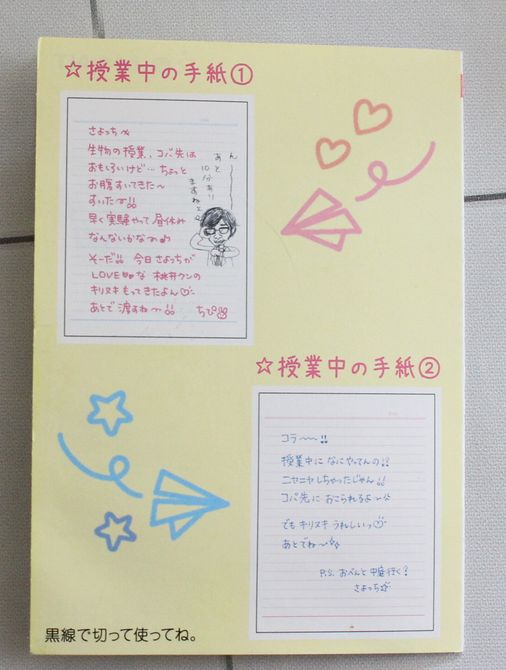 ☆授業中の手紙①
さよっちへ
生物の授業、コバ先は
おもしろいけど…ちょっと
お腹すいてきた〜
すいた〜!!
早く実験やって昼休み
なんないかな〜♪
そーだ!! 今日さよっちが
LOVE♥な 桃井クンの
キリヌキもってきたよん♡
あとで渡すね〜!!
ちぴ
あと
10分あり
ますねぇ
☆授業中の手紙②
コラ〜〜!!
授業中に なにやってんの!?
ニヤニヤしちゃったじゃん!!
コバ先に おこられるよ〜
でも キリヌキ うれしいっ♡
あとでね〜☆
P.S. おべんと 中庭 行く?
さよっち☆
黒線で切って使ってね。